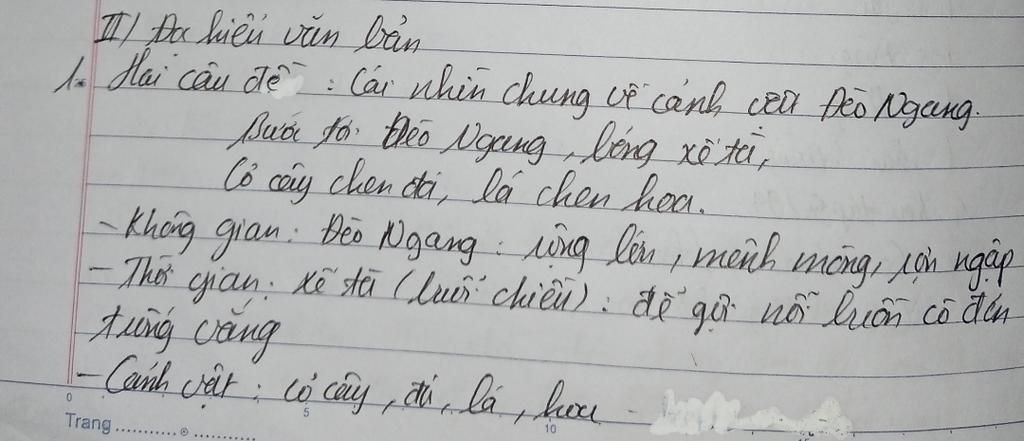 II/ Đọc hiểu văn bản
1. Hai câu đề : Cái nhìn chung về cảnh vật Đèo Ngang.
Bước tới Đèo Ngang, bóng xế tà,
Cỏ cây chen đá, lá chen hoa.
- Không gian : Đèo Ngang : rộng lớn, mênh mông, rợn ngập
- Thời gian : xế tà (buổi chiều) : dễ gợi nỗi buồn cô đơn
trống vắng
- Cảnh vật : cỏ cây, đá, lá, hoa
0 5 10
Trang